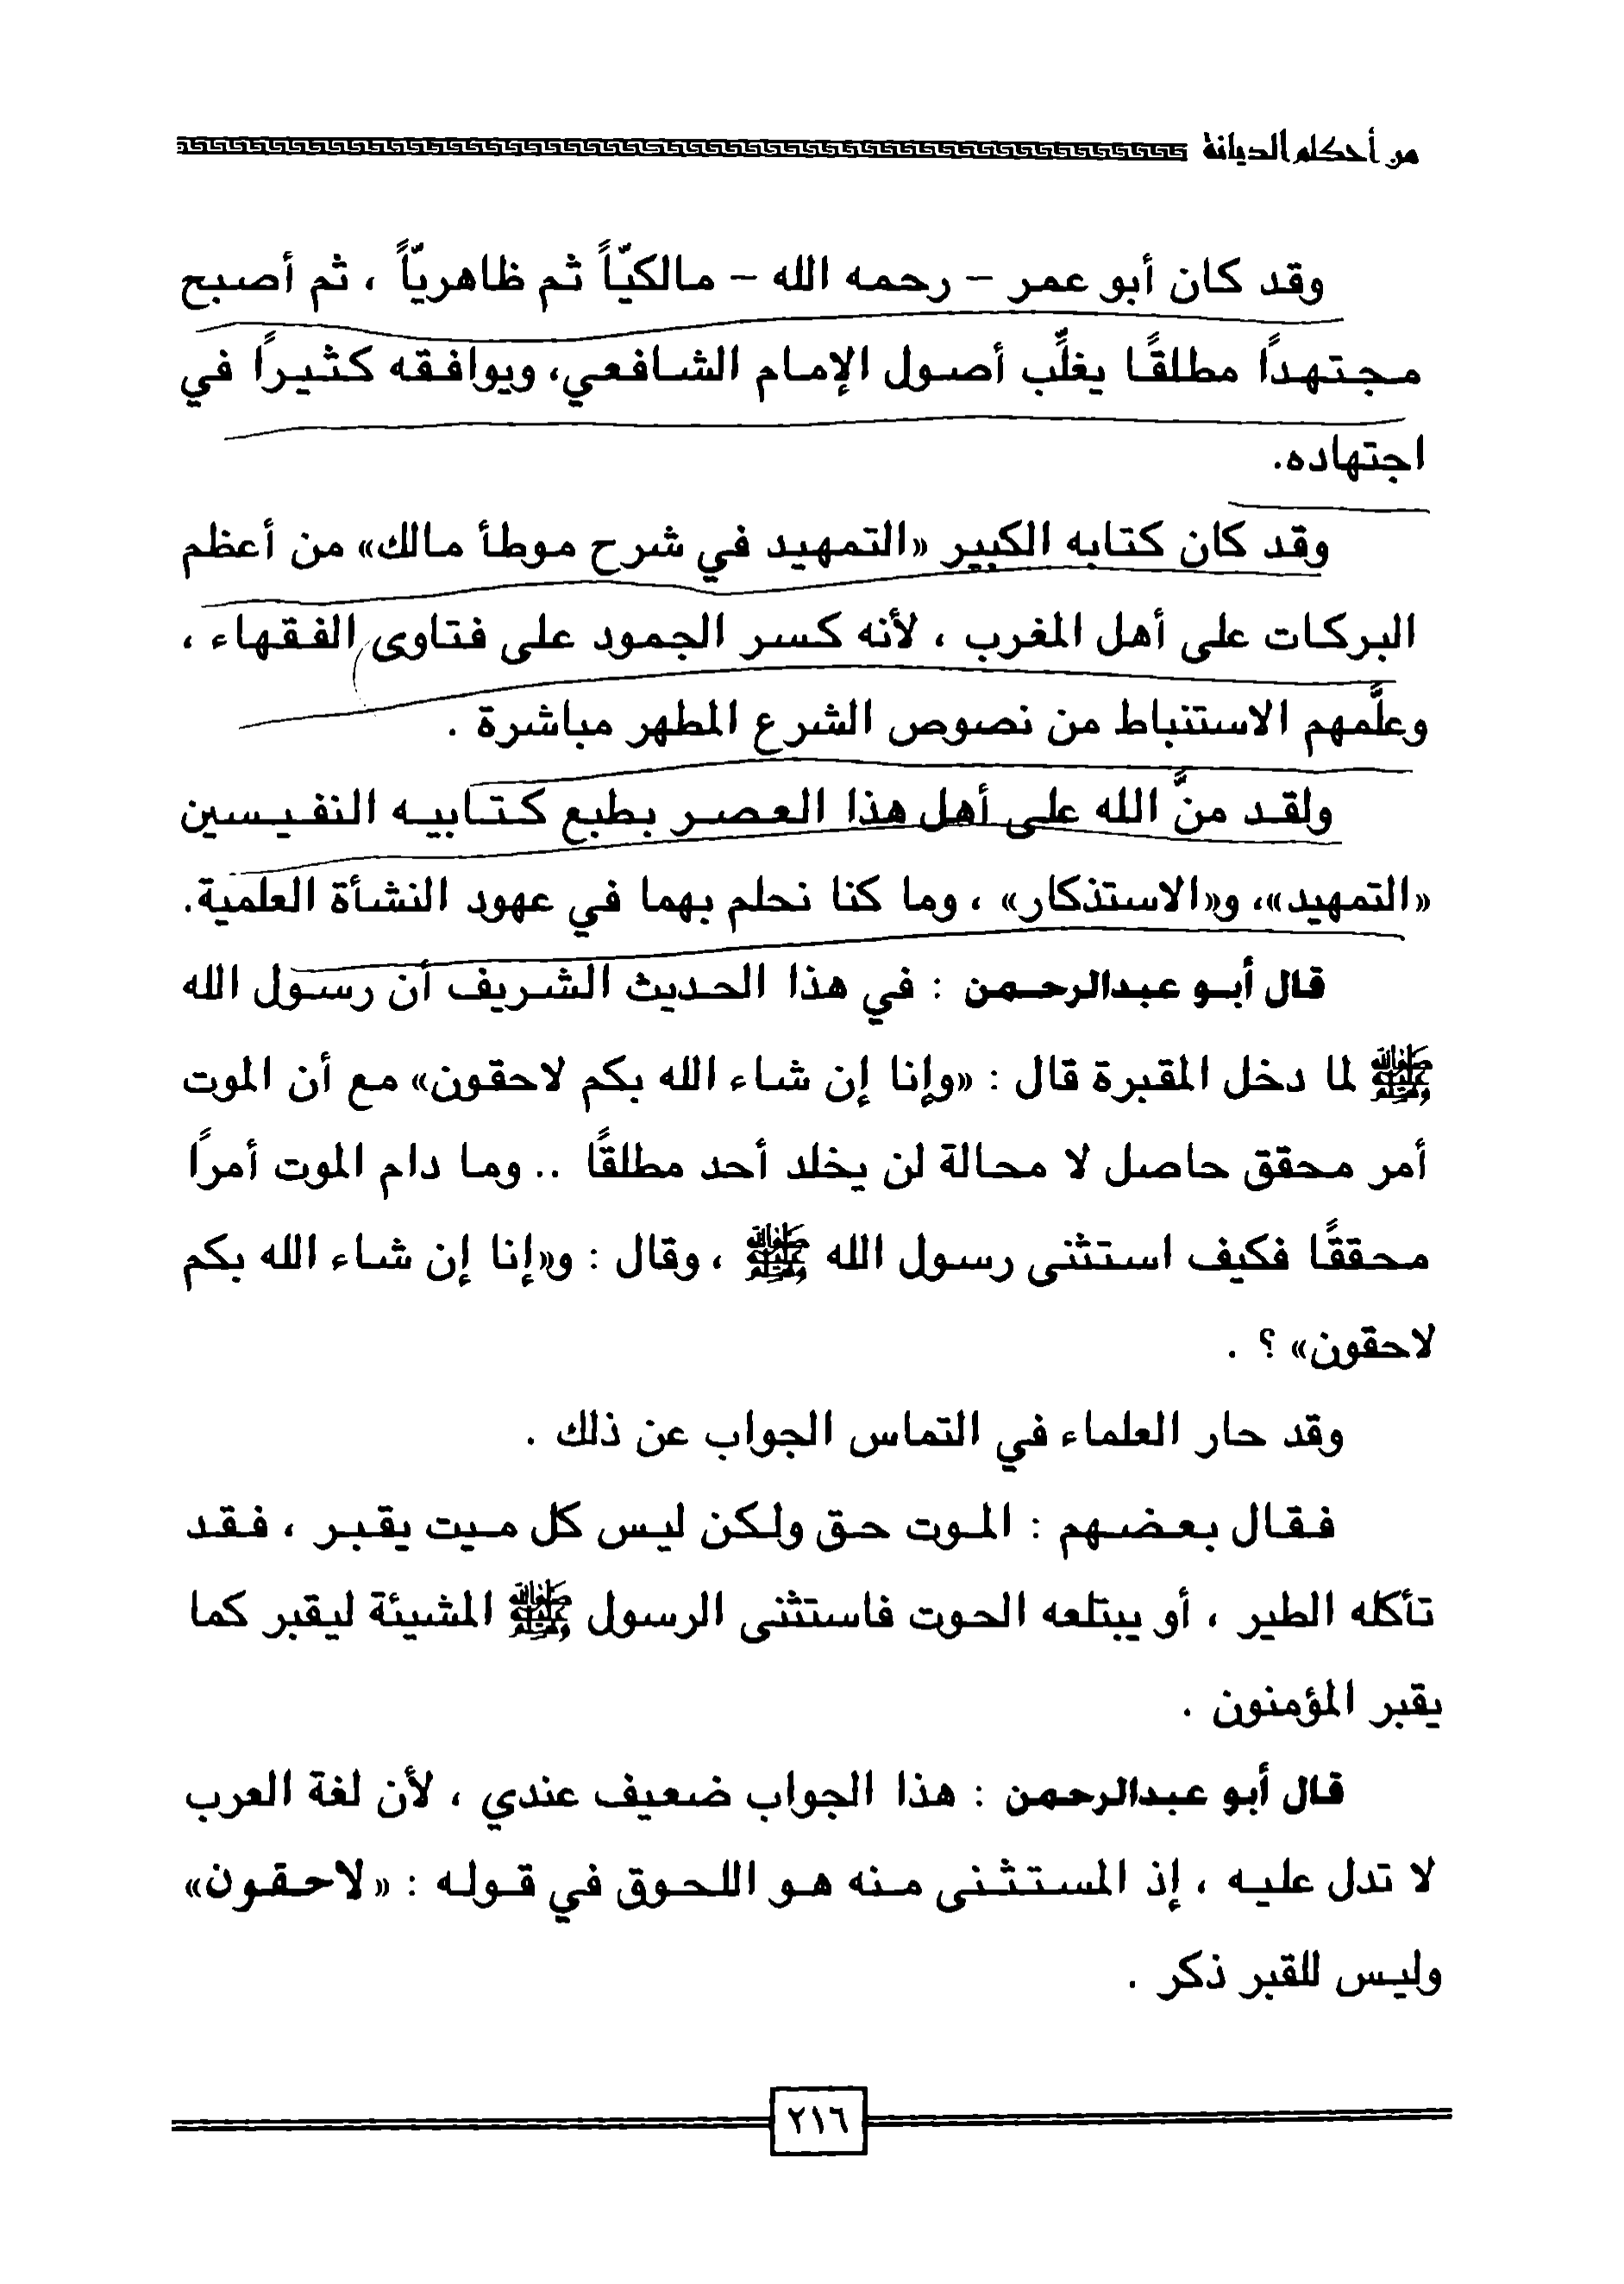 من أحكام الديانة
وقد كان أبو عمر - رحمه الله - مالكيّاً ثم ظاهريّاً ، ثم أصبح
مجتهداً مطلقًا يغلِّب أصول الإمام الشافعي، ويوافقه كثيرًا في
اجتهاده.
وقد كان كتابه الكبير «التمهيد في شرح موطأ مالك» من أعظم
البركات على أهل المغرب ، لأنه كسر الجمود على فتاوى الفقهاء ،
وعلَّمهم الاستنباط من نصوص الشرع المطهر مباشرة .
ولقد منَّ الله على أهل هذا العصر بطبع كتابيه النفيسين
«التمهيد»، و«الاستذكار» ، وما كنا نحلم بهما في عهود النشأة العلمية.
قال أبو عبدالرحمن : في هذا الحديث الشريف أن رسول الله
ﷺ لما دخل المقبرة قال : «وإنا إن شاء الله بكم لاحقون» مع أن الموت
أمر محقق حاصل لا محالة لن يخلد أحد مطلقًا .. وما دام الموت أمرًا
محققًا فكيف استثنى رسول الله ﷺ ، وقال : و«إنا إن شاء الله بكم
لاحقون» ؟ .
وقد حار العلماء في التماس الجواب عن ذلك .
فقال بعضهم : الموت حق ولكن ليس كل ميت يقبر ، فقد
تأكله الطير ، أو يبتلعه الحوت فاستثنى الرسول ﷺ المشيئة ليقبر كما
يقبر المؤمنون .
قال أبو عبدالرحمن : هذا الجواب ضعيف عندي ، لأن لغة العرب
لا تدل عليه ، إذ المستثنى منه هو اللحوق في قوله : «لاحقون»
وليس للقبر ذكر .
٢١٦